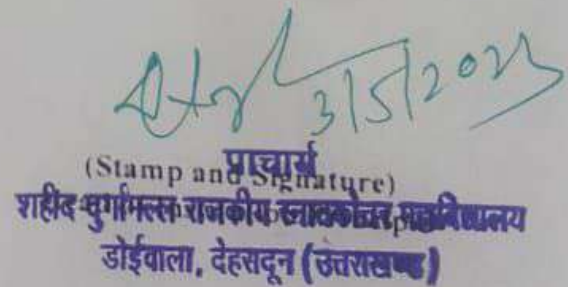 3/5/2023
प्राचार्य
(Stamp and Signature)
शहीद दुर्गामल्ल राजकीय स्नातकोत्तर महाविद्यालय
डोईवाला, देहरादून (उत्तराखण्ड)